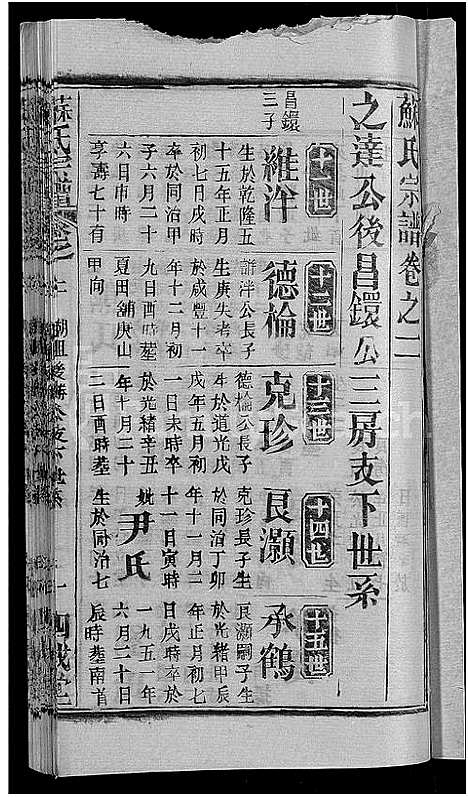 蘇氏宗譜卷之二
之達公後昌鐶公三房支下世系
昌鐶
三子
十一世
維泮
生於乾隆五
十五年正月
初七日戌時
卒於同治甲
子六月二十
六日申時
享壽七十有
十二世
德棆
維泮公長子
生庚失考卒
於咸豐十一
年十二月初
九日酉時塟
夏田舖庚山
甲向
十三世
克珍
德棆公長子
生於道光戊
戌年五月初
一日未時卒
於光緒辛丑
年十月二十
二日酉時塟
十四世
良灝
克珍長子生
於同治丁卯
年十一月二
十一日寅時
妣尹氏
生於同治七
十五世
承鶴
良灝嗣子生
於光緒甲辰
年正月初七
日戌時卒於
一九五一年
六月二十日
辰時塟南首
蘇氏宗譜